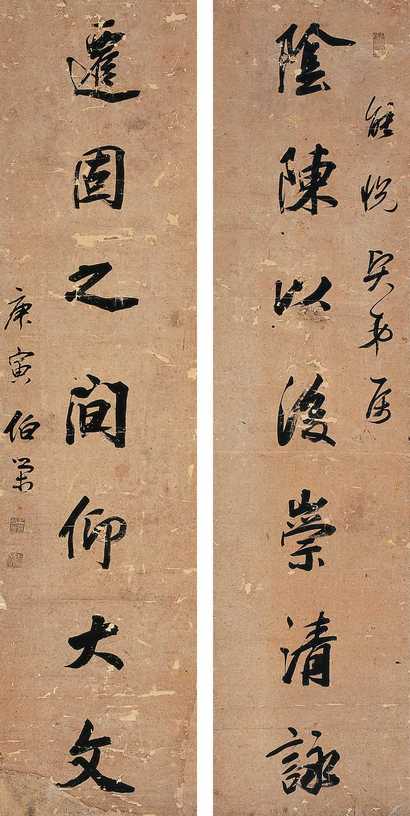 陰陳以後崇清詠
遷固之間仰大文
庚寅伯蒙